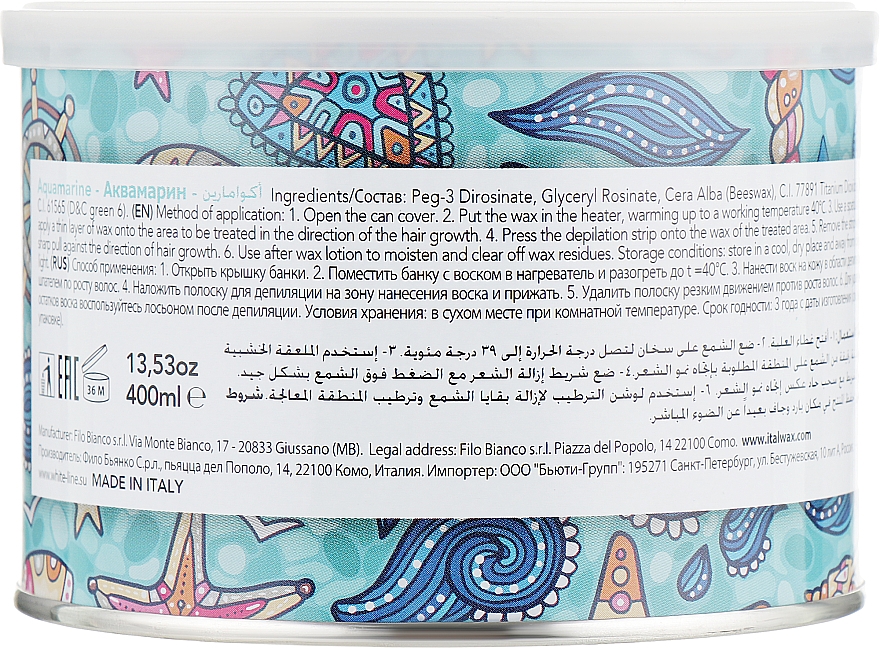 Aquamarine - Аквамарин - أكوامارين Ingredients/Состав: Peg-3 Dirosinate, Glyceryl Rosinate, Cera Alba (Beeswax), C.I. 77891 Titanium
C.I. 61565 (D&C green 6). (EN) Method of application: 1. Open the can cover. 2. Put the wax in the heater, warming up to a working temperature 40°C. 3. Use a
apply a thin layer of wax onto the area to be treated in the direction of the hair growth. 4. Press the depilation strip onto the wax of the treated area. 5. Remove the
sharp pull against the direction of hair growth. 6. Use after wax lotion to moisten and clear off wax residues. Storage conditions: store in a cool, dry place and away from
light. (RUS) Способ применения: 1. Открыть крышку банки. 2. Поместить банку с воском в нагреватель и разогреть до t =40°C. 3. Нанести воск на кожу в области
шпателем по росту волос. 4. Наложить полоску для депиляции на зону нанесения воска и прижать. 5. Удалить полоску резким движением против роста волос. 6. Для
остатков воска воспользуйтесь лосьоном после депиляции. Условия хранения: в сухом месте при комнатной температуре. Срок годности: 3 года с даты изготовления
упаковке).
١- أفتح غطاء العلبة. ٢- ضع الشمع على سخان لتصل درجة الحرارة إلى ٣٩ درجة مئوية. ٣- إستخدم الملعقة الخشبية
من الشمع على المنطقة المطلوبة بإتجاه نمو الشعر. ٤- ضع شريط إزالة الشعر مع الضغط فوق الشمع بشكل جيد.
مع سحب حاد عكس إتجاه نمو الشعر. ٦- إستخدم لوشن الترطيب لإزالة بقايا الشمع وترطيب المنطقة المعالجة. شروط
في مكان بارد وجاف بعيداً عن الضوء المباشر.
EAC
36 M
13,53oz
400ml e
Manufacturer: Filo Bianco s.r.l. Via Monte Bianco, 17 - 20833 Giussano (MB). Legal address: Filo Bianco s.r.l. Piazza del Popolo, 14 22100 Como. www.italwax.com
Производитель: Фило Бьянко С.р.л., пьяцца дел Пополо, 14, 22100 Комо, Италия. Импортер: ООО "Бьюти-Групп": 195271 Санкт-Петербург, ул. Бестужевская, 10 лит А,
www.white-line.su MADE IN ITALY